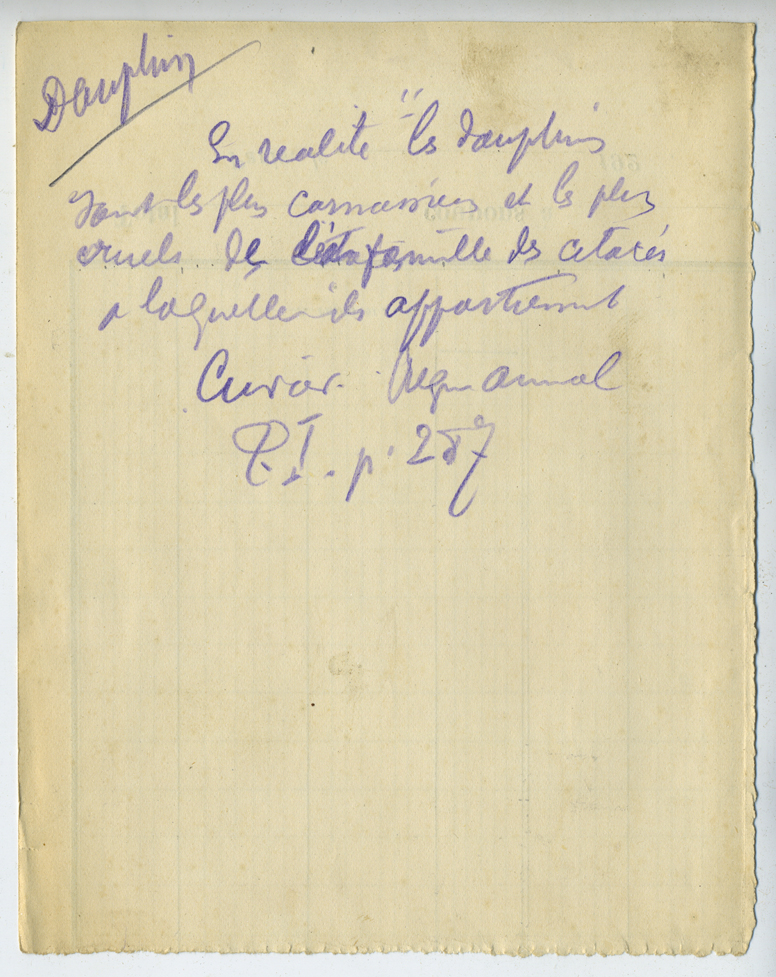 Dauphin
En realité " les dauphins
sont les plus carnassiers et les plus
cruels de la famille des cetacés
a laquelle ils appartiennent
Cuvier. Regne animal
T. I. p. 287